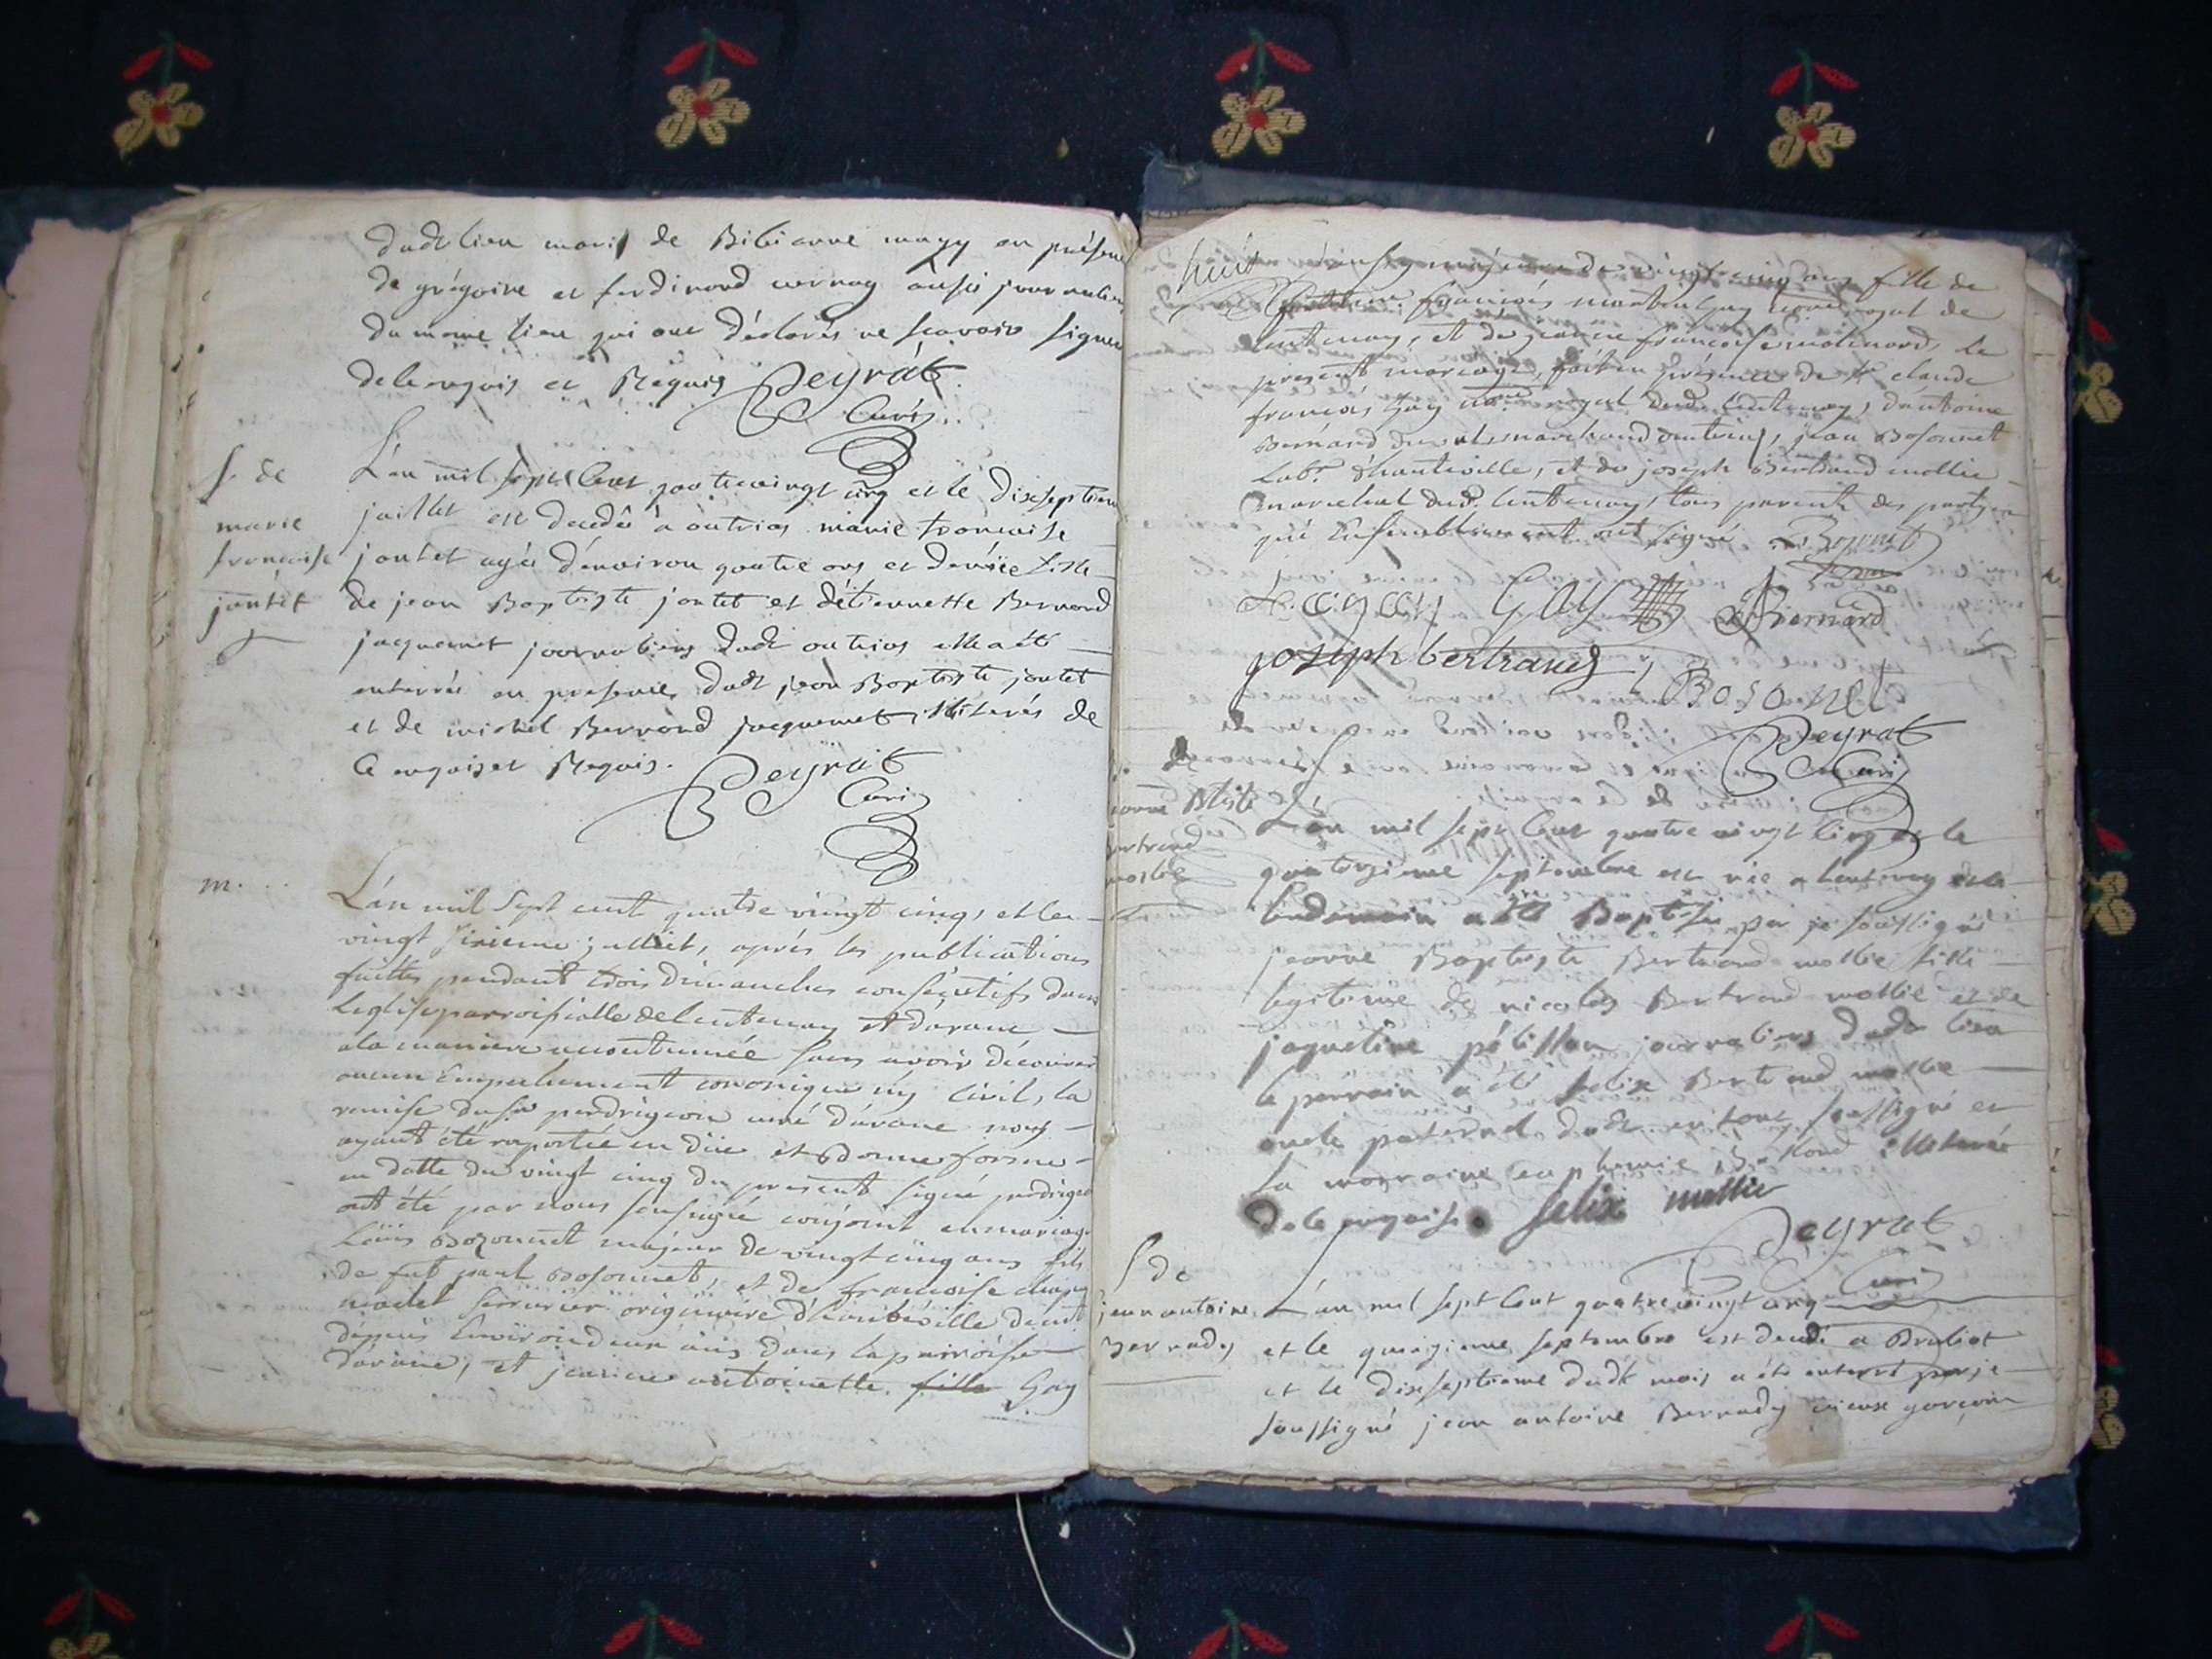 dudt lieu mari de Bibianne mugy en présence
de grégoire et ferdinand aussi journaliers
du meme lieu qui ont déclarés ne scavoir signer
de ce enquis et Requis Peyrat
Curé
S. de
marie
francoise
joutet
L'an mil sept Cent quatrevingt cinq et le dixseptieme
juillet est decedée a outrias marie francoise
joutet agée d'environ quatre ans et demïe fille
de jean Baptiste joutet et détiennette Bernard
jacquemet journaliers dudt outrias elle a été
enterrée en presence dudt jean Baptiste joutet
et de michel Bernard jacquemet illiterés de
ce enquis et Requis. Peyrat
Curé
m.
L'an mil sept cent quatre vingt cinq, et le
vingt sixieme julliet, aprés les publications
faittes pendant trois dimanches consécutifs dans
leglise parroissialle de lentenay et d'arane
a la maniere accoutumée sans avoir découvert
aucun empechement canonique ny civil, la
remise du sr perdrigeon curé d'arane nous
ayant été raportée en düe et bonne forme
en datte du vingt cinq du present signé perdrigeon
ont été par nous soussigné conjoint en mariage
Loüis Bozonnet majeur de vingt cinq ans fils
de fut paul Bosonnet, et de francoise
serrurier originaire d'hauteville demt
depuis environ deux ans dans la parroisse
d'arane, et jeanne antoinette fille Gay
huit majeure de vingt cinq ans fille de
francois Gay royal de
Lentenay, et de jeanne francoise molinard, le
present mariage, fait en présence de sr claude
francois Gay royal dudt Lentenay, d'antoine
Bernard marchand d'outrias, jean Bosonnet
Labr d'hauteville, et de joseph Bertrand mollie
marechal dud. lentenay, tous parents des parties
qui Ensemblement ont signé L Bozonnet
Gay GAY Bernard
joseph bertrand, Bosonet
Peyrat
Curé
B. de
jeanne Btiste
bertrand
mollie
L'an mil sept Cent quatre vingt Cinq et le
quatorzieme septembre est née a lentenay et le
lendemain a été Baptisée par je soussigné
jeanne Baptiste Bertrand mollie fille
legitime de nicolas Bertrand mollie et de
jaqueline pélisson journaliers dudt lieu
le parrain a été felix Bertrand mollie
oncle paternel dudt soussigné et
la marraine euphemie illiterée
de ce enquise felix mollie
Peyrat
Curé
S de
jean antoine
Bernady
L'an mil sept Cent quatrevingt cinq
et le quinzieme septembre est decedé a Bruliat
et le dixseptieme dudt mois a été enterré par je
soussigné jean antoine Bernady vieux garçon